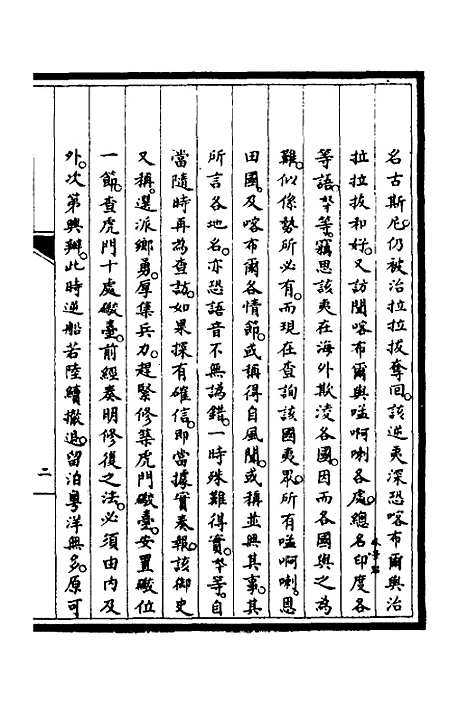 名古斯尼。仍被治拉拉拔奪回。該逆夷深恐喀布爾與治
拉拉拔和好。又訪聞喀布爾與嗌啊唎各處。總名印度各
等語。奴才等竊思該夷在海外欺凌各國。因而各國與之為
難。似係勢所必有。而現在查詢該國夷眾。所有嗌啊唎。恩
田國。及喀布爾各情節。或稱得自風聞。或稱並無其事。其
所言各地名。亦恐語音不無譌錯。一時殊難得實。等。自
當隨時再為查訪。如果探有確信。即當據實奏報。該御史
又稱。選派鄉勇。厚集兵力。趕緊修築虎門礮臺。安置礮位
一節。查虎門十處礮臺。前經奏明修復之法。必須由內及
外。次第興辦。此時逆船若陸續撤退。留泊粵洋無多。原可
二